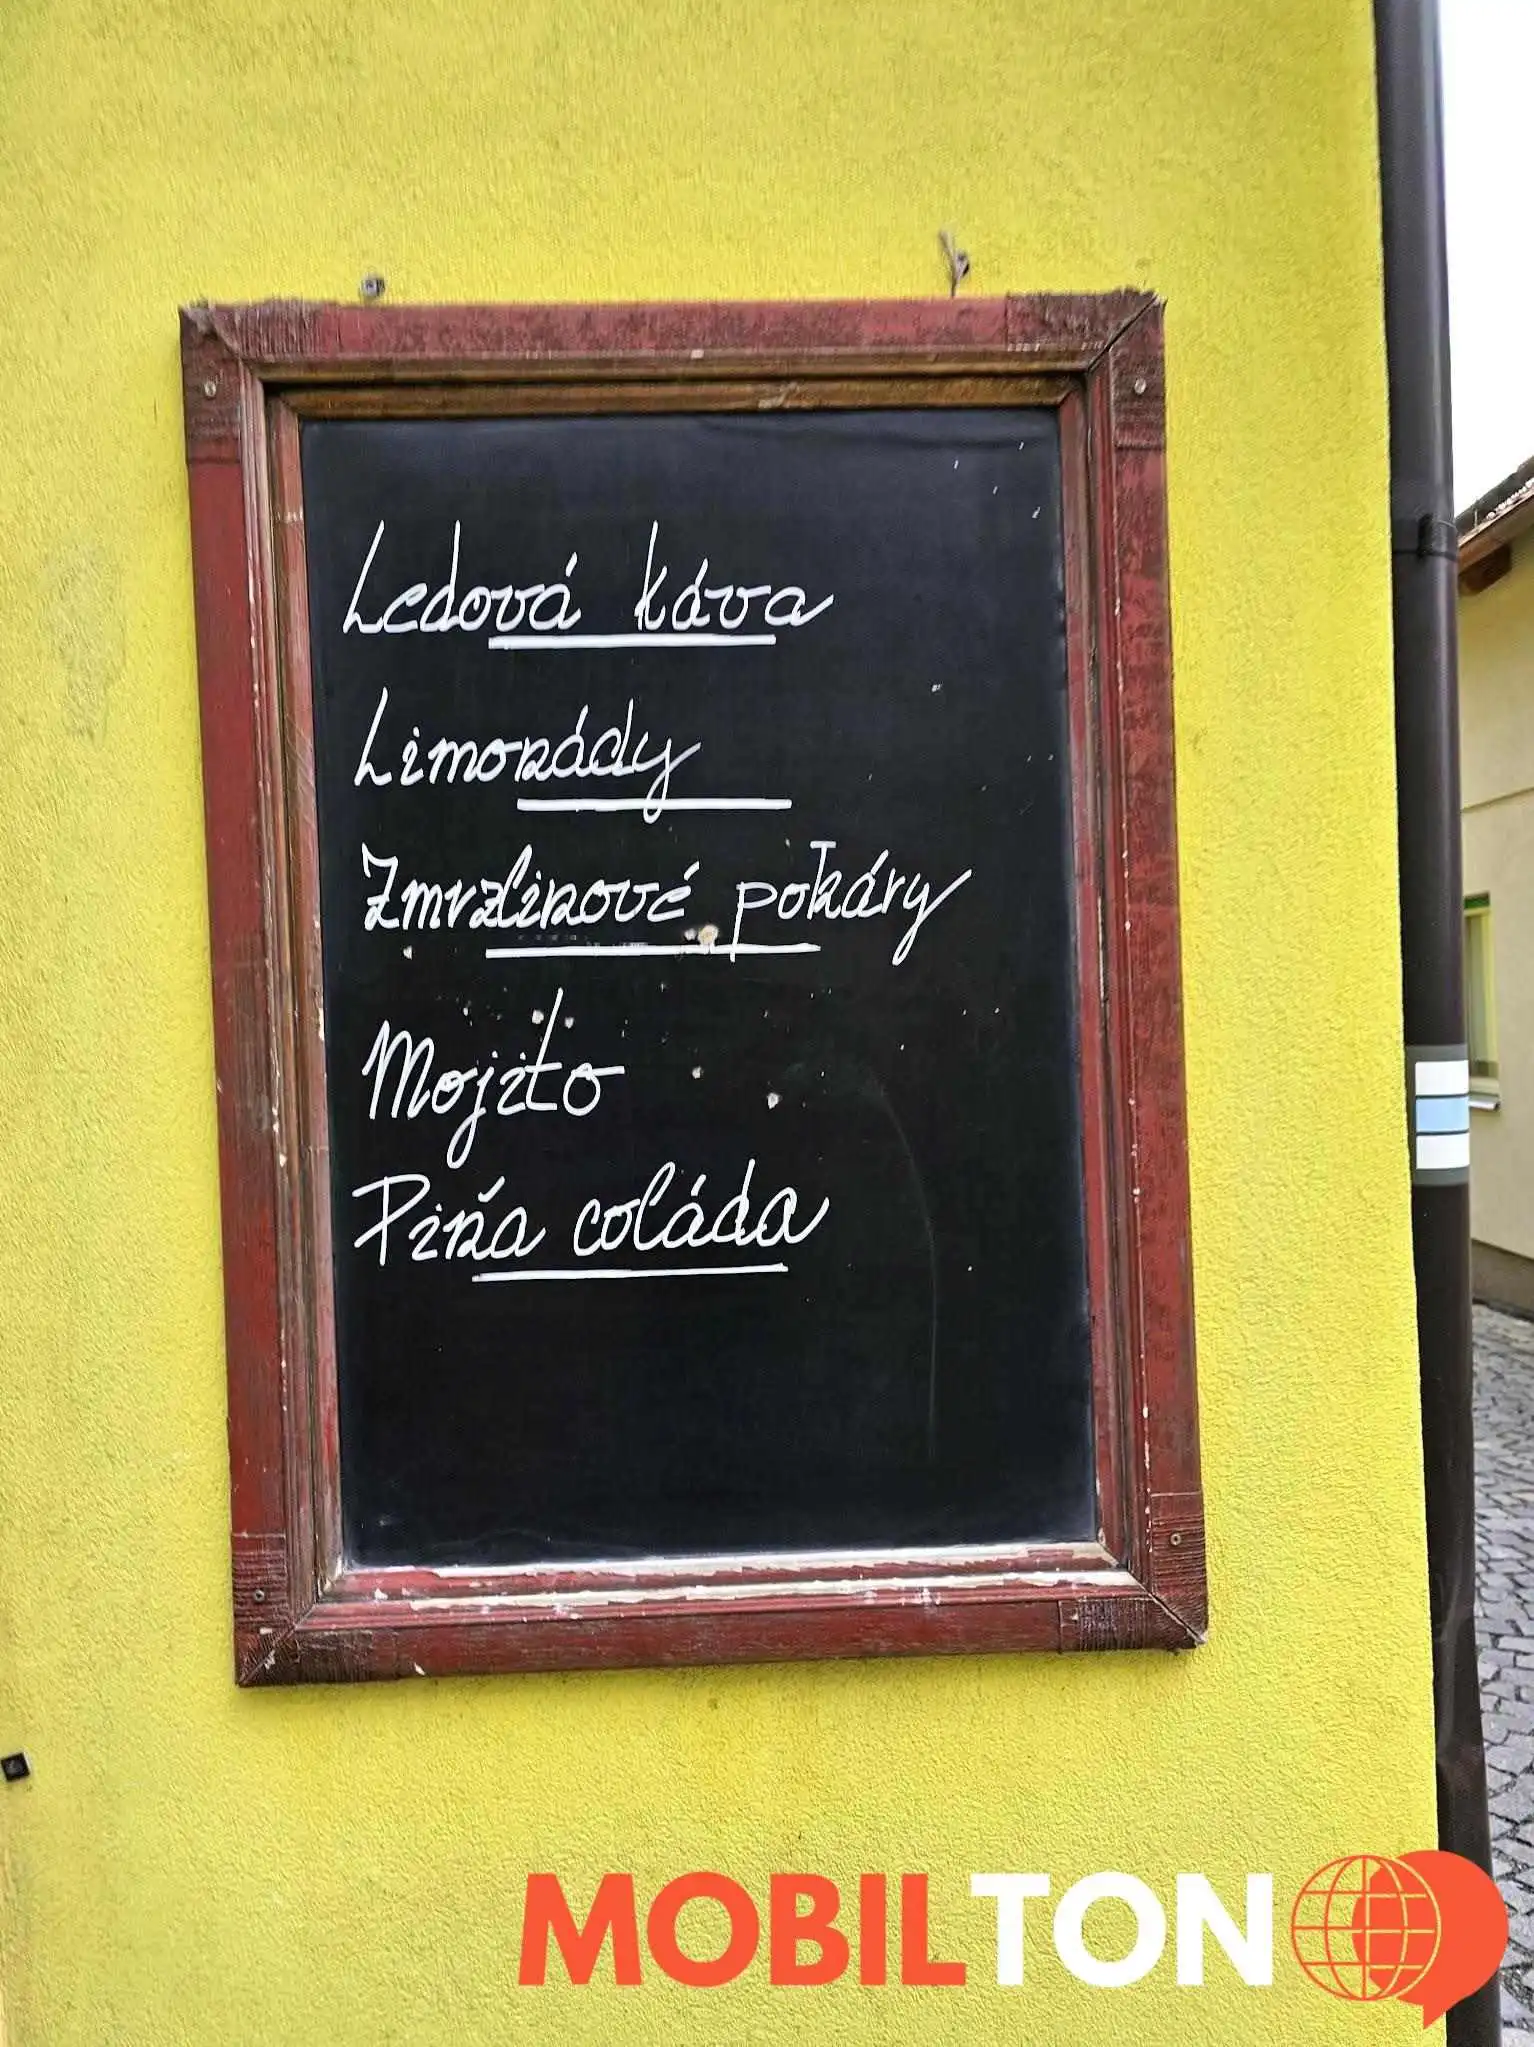 Ledová káva
Limonády
Zmrzlinové pokáry
Mojito
Piňa coláda
MOBILTON